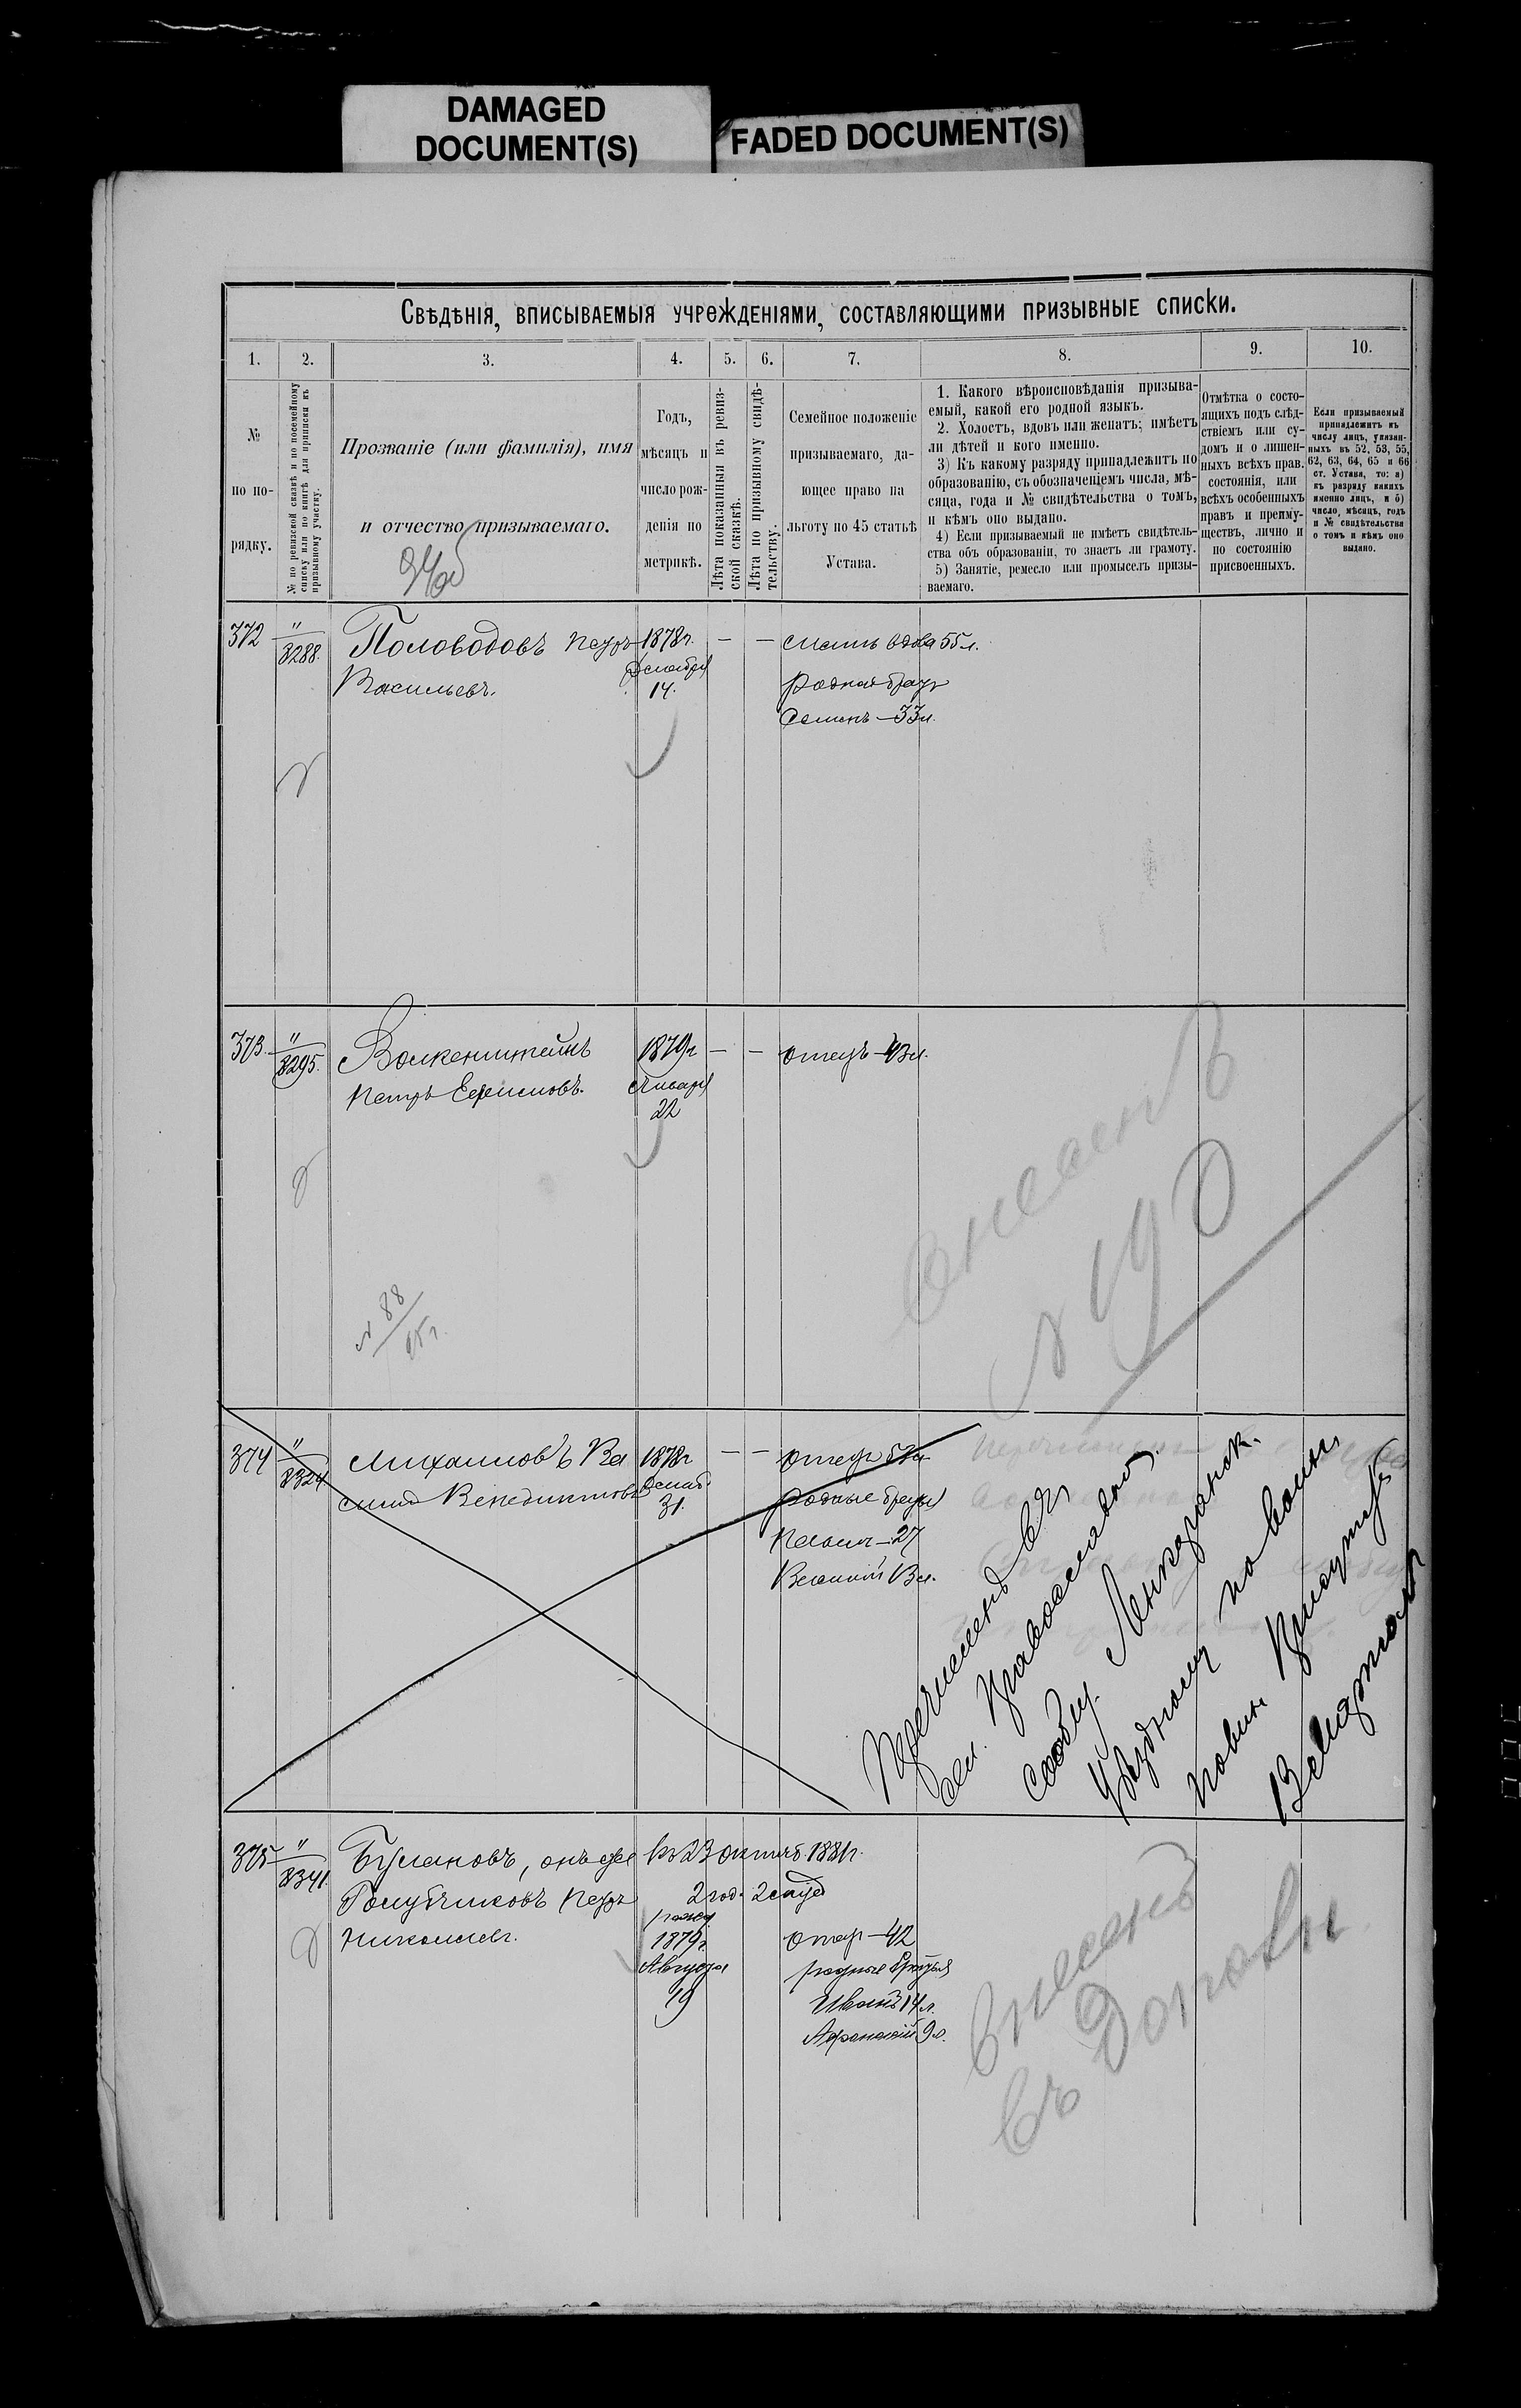 DAMAGED
DOCUMENT(S)
FADED DOCUMENT(S)
Свѣдѣнія, вписываемыя учрежденіями, составляющими призывные списки.
1. 2. 3. 4. 5. 6. 7. 8. 9. 10.
№
по по-
рядку.
№ по ревизской сказкѣ и по посемейному
списку или по книгѣ для приписки къ
призывному участку.
Прозваніе (или фамилія), имя
и отчество призываемаго.
Годъ,
мѣсяцъ и
число рож-
денія по
метрикѣ.
Лѣта показанныя въ ревиз-
ской сказкѣ.
Лѣта по призывному свидѣ-
тельству.
Семейное положеніе
призываемаго, да-
ющее право на
льготу по 45 статьѣ
Устава.
1. Какого вѣроисповѣданія призыва-
емый, какой его родной языкъ.
2. Холостъ, вдовъ или женатъ; имѣетъ
ли дѣтей и кого именно.
3) Къ какому разряду принадлежитъ по
образованію, съ обозначеніемъ числа, мѣ-
сяца, года и № свидѣтельства о томъ,
и кѣмъ оно выдано.
4) Если призываемый не имѣетъ свидѣтель-
ства объ образованіи, то знаетъ ли грамоту.
5) Занятіе, ремесло или промыселъ призы-
ваемаго.
Отмѣтка о состо-
ящихъ подъ слѣд-
ствіемъ или су-
домъ и о лишен-
ныхъ всѣхъ прав.
состоянія, или
всѣхъ особенныхъ
правъ и преиму-
ществъ, лично и
по состоянію
присвоенныхъ.
Если призываемый
принадлежитъ къ
числу лицъ, указан-
ныхъ въ 52, 53, 55,
62, 63, 64, 65 и 66
ст. Устава, то: а)
къ разряду какихъ
именно лицъ, и б)
число, мѣсяцъ, годъ
и № свидѣтельства
о томъ и кѣмъ оно
выдано.
372 " 8288. Половодовъ Петръ 1878г. — — мать вдова 55 л.
Васильевъ. Декабря 14. родной братъ
Семенъ — 33 л.
373. " 8295. Волкенштейнъ 1879г — — отецъ — 43 л.
Петръ Ефимовъ. Января
22
Внесенъ
№ 190
№ 88
95 г.
374 " 8324 Михаиловъ Ва 1878г — — отецъ
силій Венедиктовъ Декаб. родные братья
31.
27
Перечисленъ въ
сел. Православной
сообщ. Ленкоранск.
уѣздному по воин.
повин. Присутств
375 " 8341. Булановъ, онъ же къ 23 октяб. 1881 г.
Голубчиковъ Петръ 2 год. 2
Николаевъ. 1879г. отецъ — 42
Августа родные братья
19 Иванъ 14 л.
Афанасій 9 л.
Внесенъ
въ